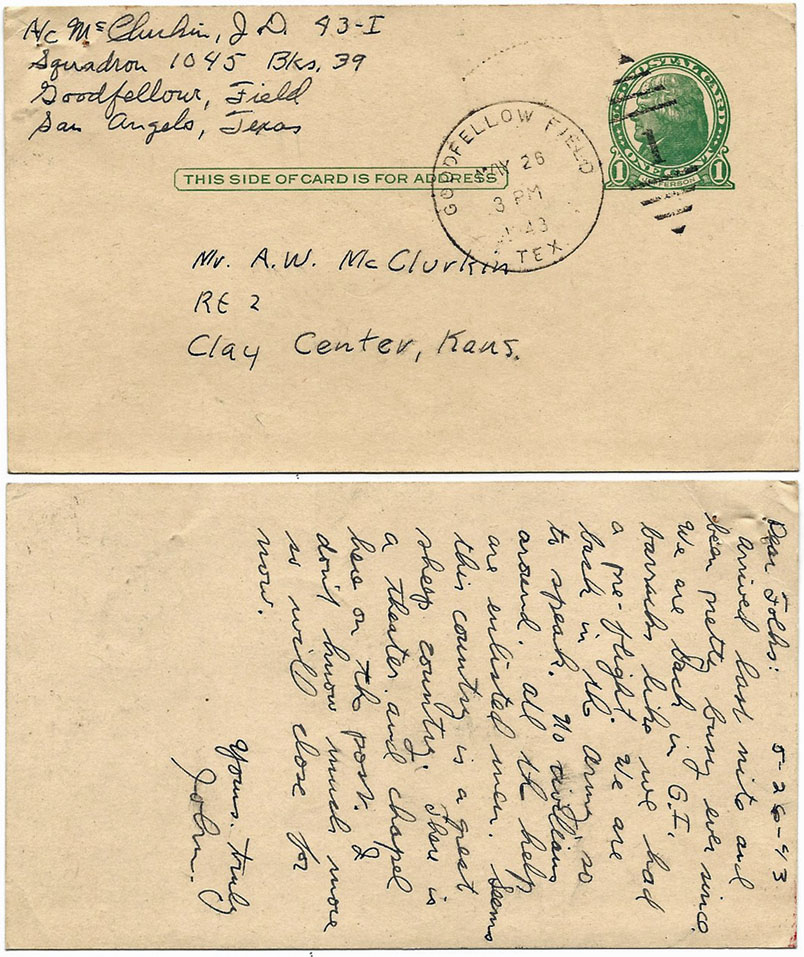 A/c McClurkin, J.D. 43-I
Squadron 1045 Bks. 39
Goodfellow, Field
San Angelo, Texas
U.S. POSTAL CARD
ONE CENT
1 JEFFERSON 1
THIS SIDE OF CARD IS FOR ADDRESS
GOODFELLOW FIELD
MAY 26
3 PM
1943
TEX
Mr. A.W. McClurkin
RE 2
Clay Center, Kans.
5-26-43
Dear Folks:
arrived last nite and
been pretty busy ever since.
We are back in G.I.
barracks like we had
a pre-flight. We are
back in the army so
to speak. No civilians
around. all the help
are enlisted men. Seems
this country is a great
sheep country. There is
a theater and chapel
here on the post. I
don't know much more
so will close for
now.
Yours truly
John.